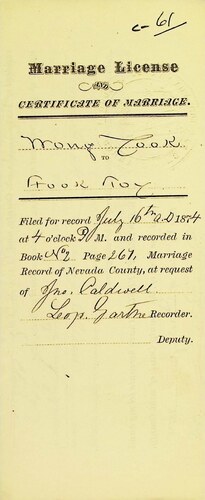 c-61
Marriage License
AND
CERTIFICATE OF MARRIAGE.
Wong Cook
TO
Took Toy
Filed for record July 16th A.D 1874
at 4 o'clock P. M. and recorded in
Book No 2 Page 261, Marriage
Record of Nevada County, at request
of Jno. Caldwell
Leop. Garthe Recorder.
Deputy.